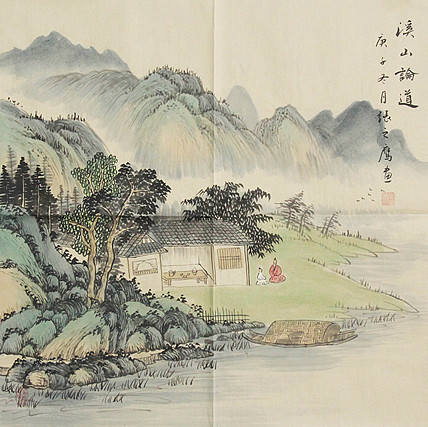 溪山論道
庚子冬月張之鷹畫